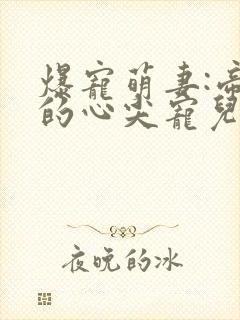 爆寵萌妻:帝
的心尖寵兒
夜晚的冰